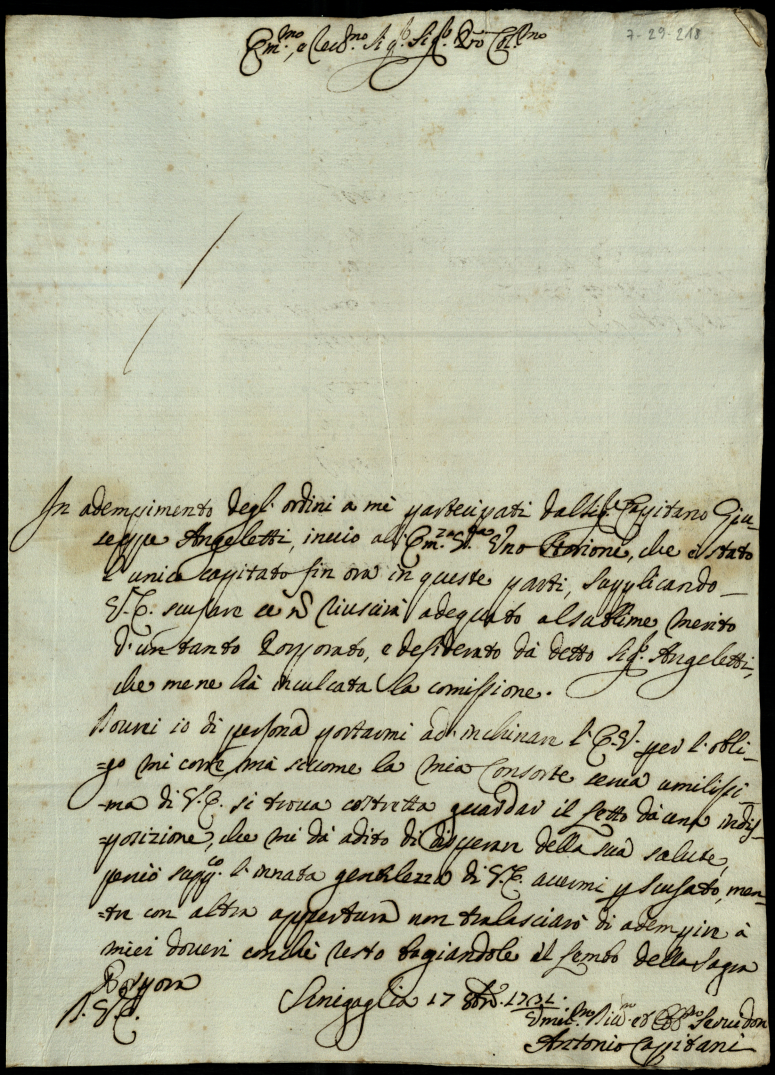 7-29-218
Em.mo, e Rev.mo Sig.r Sig.r P̃ron Col.mo
In adempimento degl'ordini a mè partecipati dall Sig.r Capitano Giu-
seppe Angeletti, inuio all' Em.za V.ra Uno Storione, che è stato
l'unico capitato fin ora in queste parti, supplicando
V. E. scusare se nõ riuscirà adequato al sublime merito
d'un tanto Porporato, e desiderato dà detto Sig.r Angeletti,
che me ne hà inculcata la comissione.
Dourei io di persona portarmi ad inchinare l'E. V. per l'obli-
=go mi corre, mà siccome la mia Consorte serua umilissi-
=ma di V. E. si troua costretta guardar il letto dà una indis-
=posizione, che mi dà adito di disperare della sua salute,
perciò supp.co l'innata gentilezza di V. E. auermi p scusato, men-
=tre con altra appertura non tralasciarò di adempire à
miei doueri con che resto bagiandole il lembo della Sagra
Porpora
D. V. E.
Sinigaglia 17 8bre 1731.
Umil.mo Diu.mo et Obb.mo Seruidore
Antonio Capitani